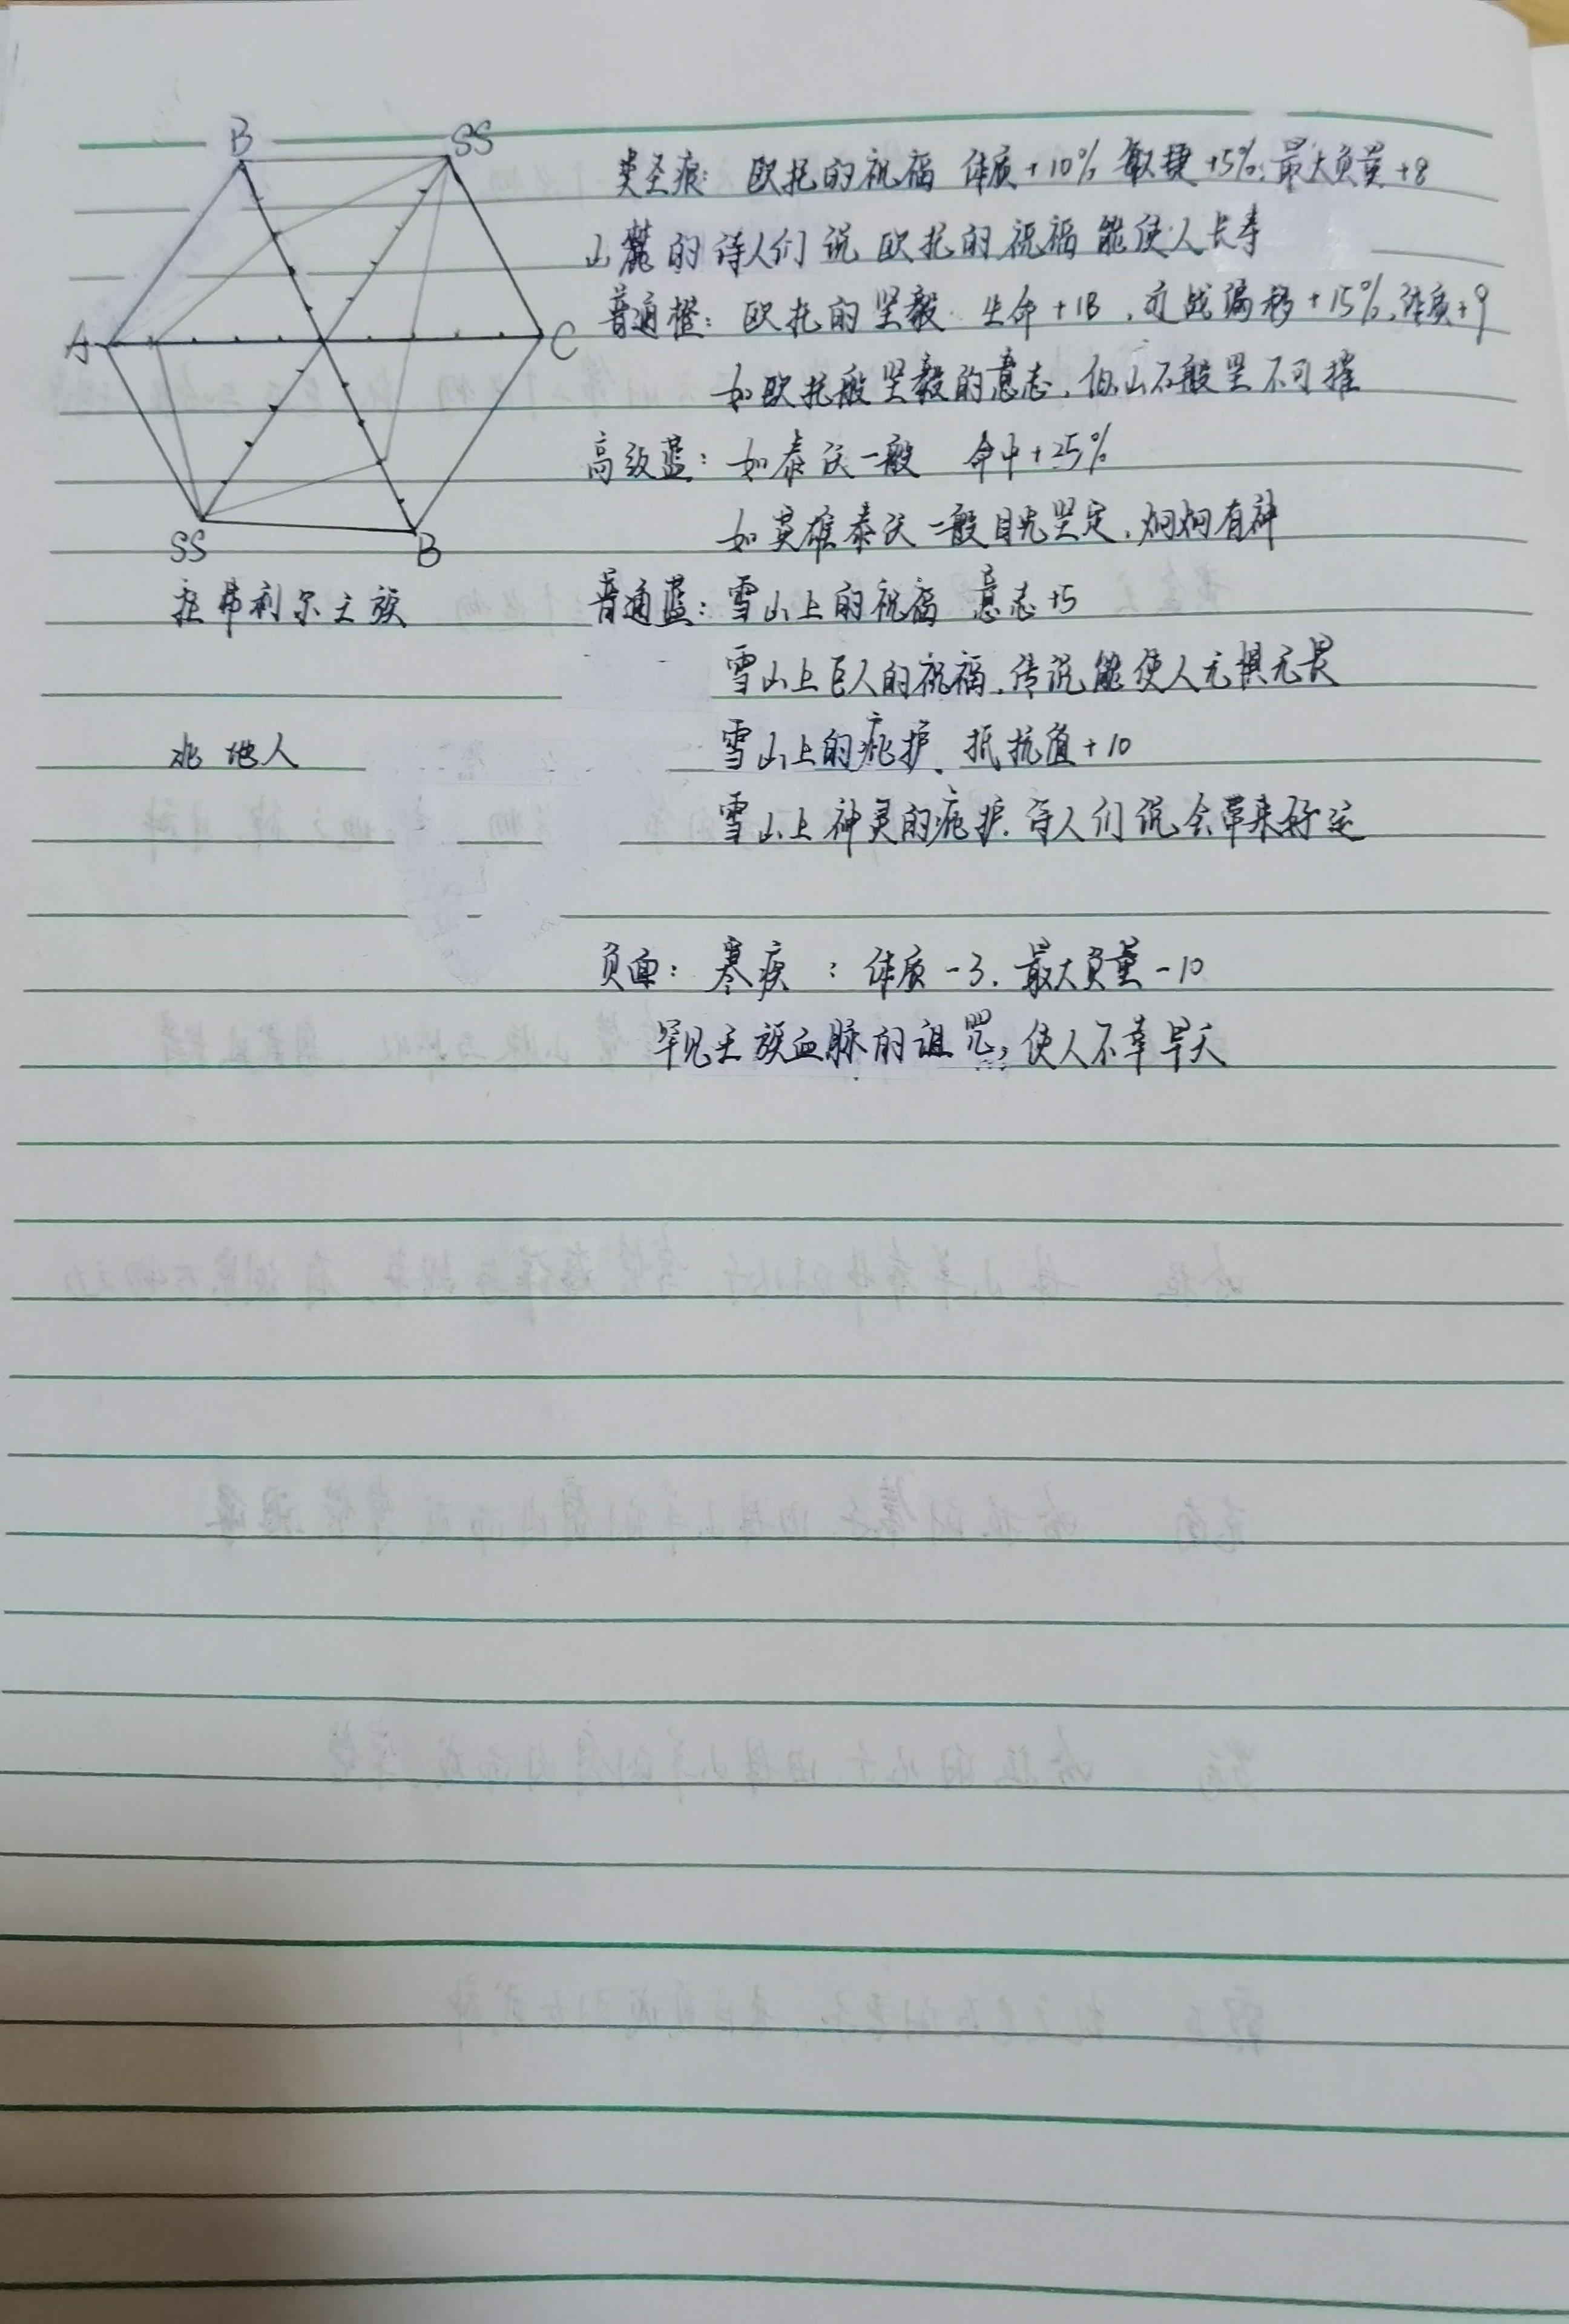 B SS
A C
SS B
拉弗利尔之族
北地人
类圣痕：欧托的祝福 体质+10% 敏捷+5% 最大负量+8
山麓的诗人们说 欧托的祝福能使人长寿
普通橙：欧托的坚毅 生命+18，近战偏移+15%，体质+9
如欧托般坚毅的意志，似山石般坚不可摧
高级蓝：如泰沃一般 命中+25%
如英雄泰沃一般目光坚定，炯炯有神
普通蓝：雪山上的祝福 意志+5
雪山上巨人的祝福，传说能使人无惧无畏
雪山上的庇护，抵抗值+10
雪山上神灵的庇护，诗人们说会带来好运
负面：寒疾：体质-3，最大负量-10
罕见王族血脉的诅咒，使人不幸早夭